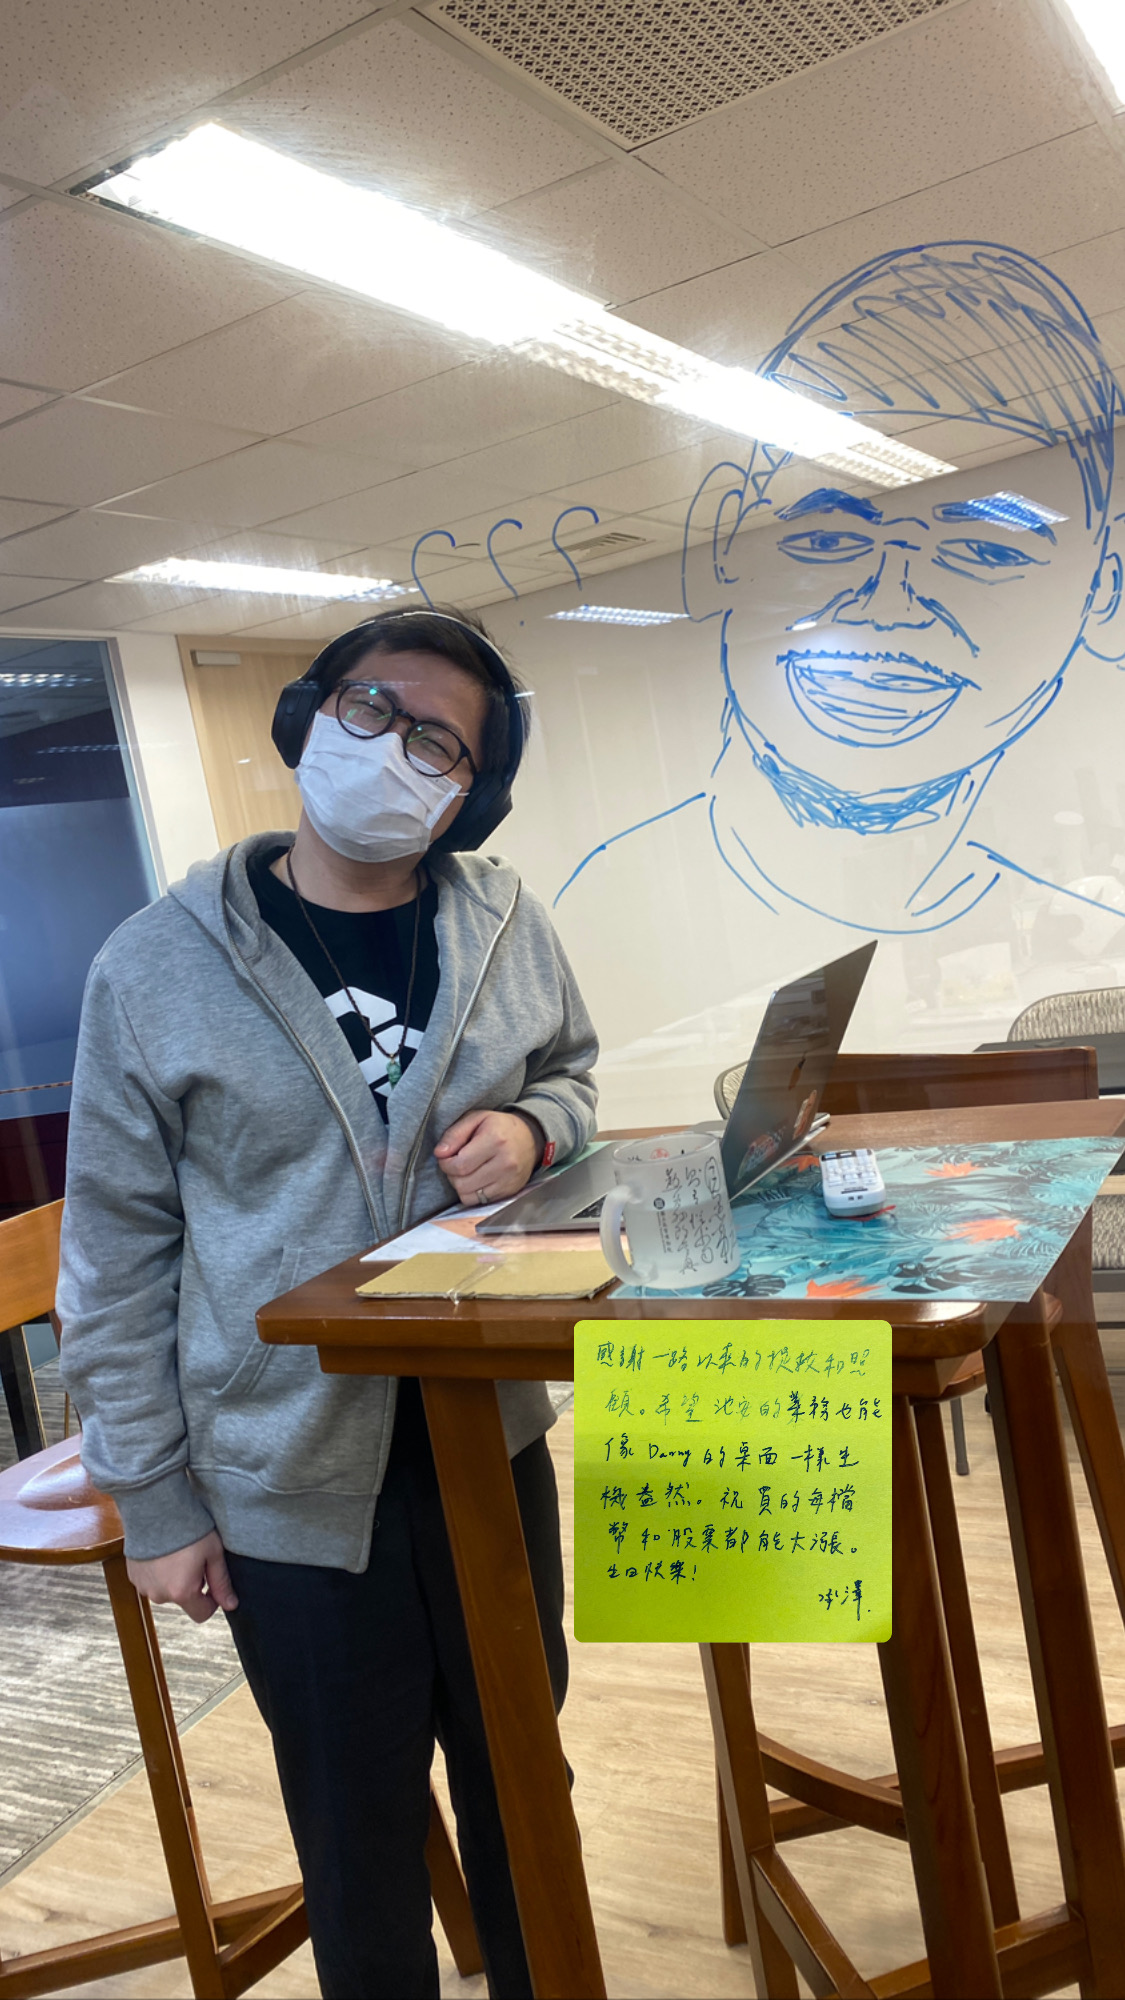 感謝一路以來的提攜和照
顧。希望池安的業務也能
像 Danny 的桌面一樣生
機盎然。祝買的每檔
幣和股票都能大漲。
生日快樂!
澤.